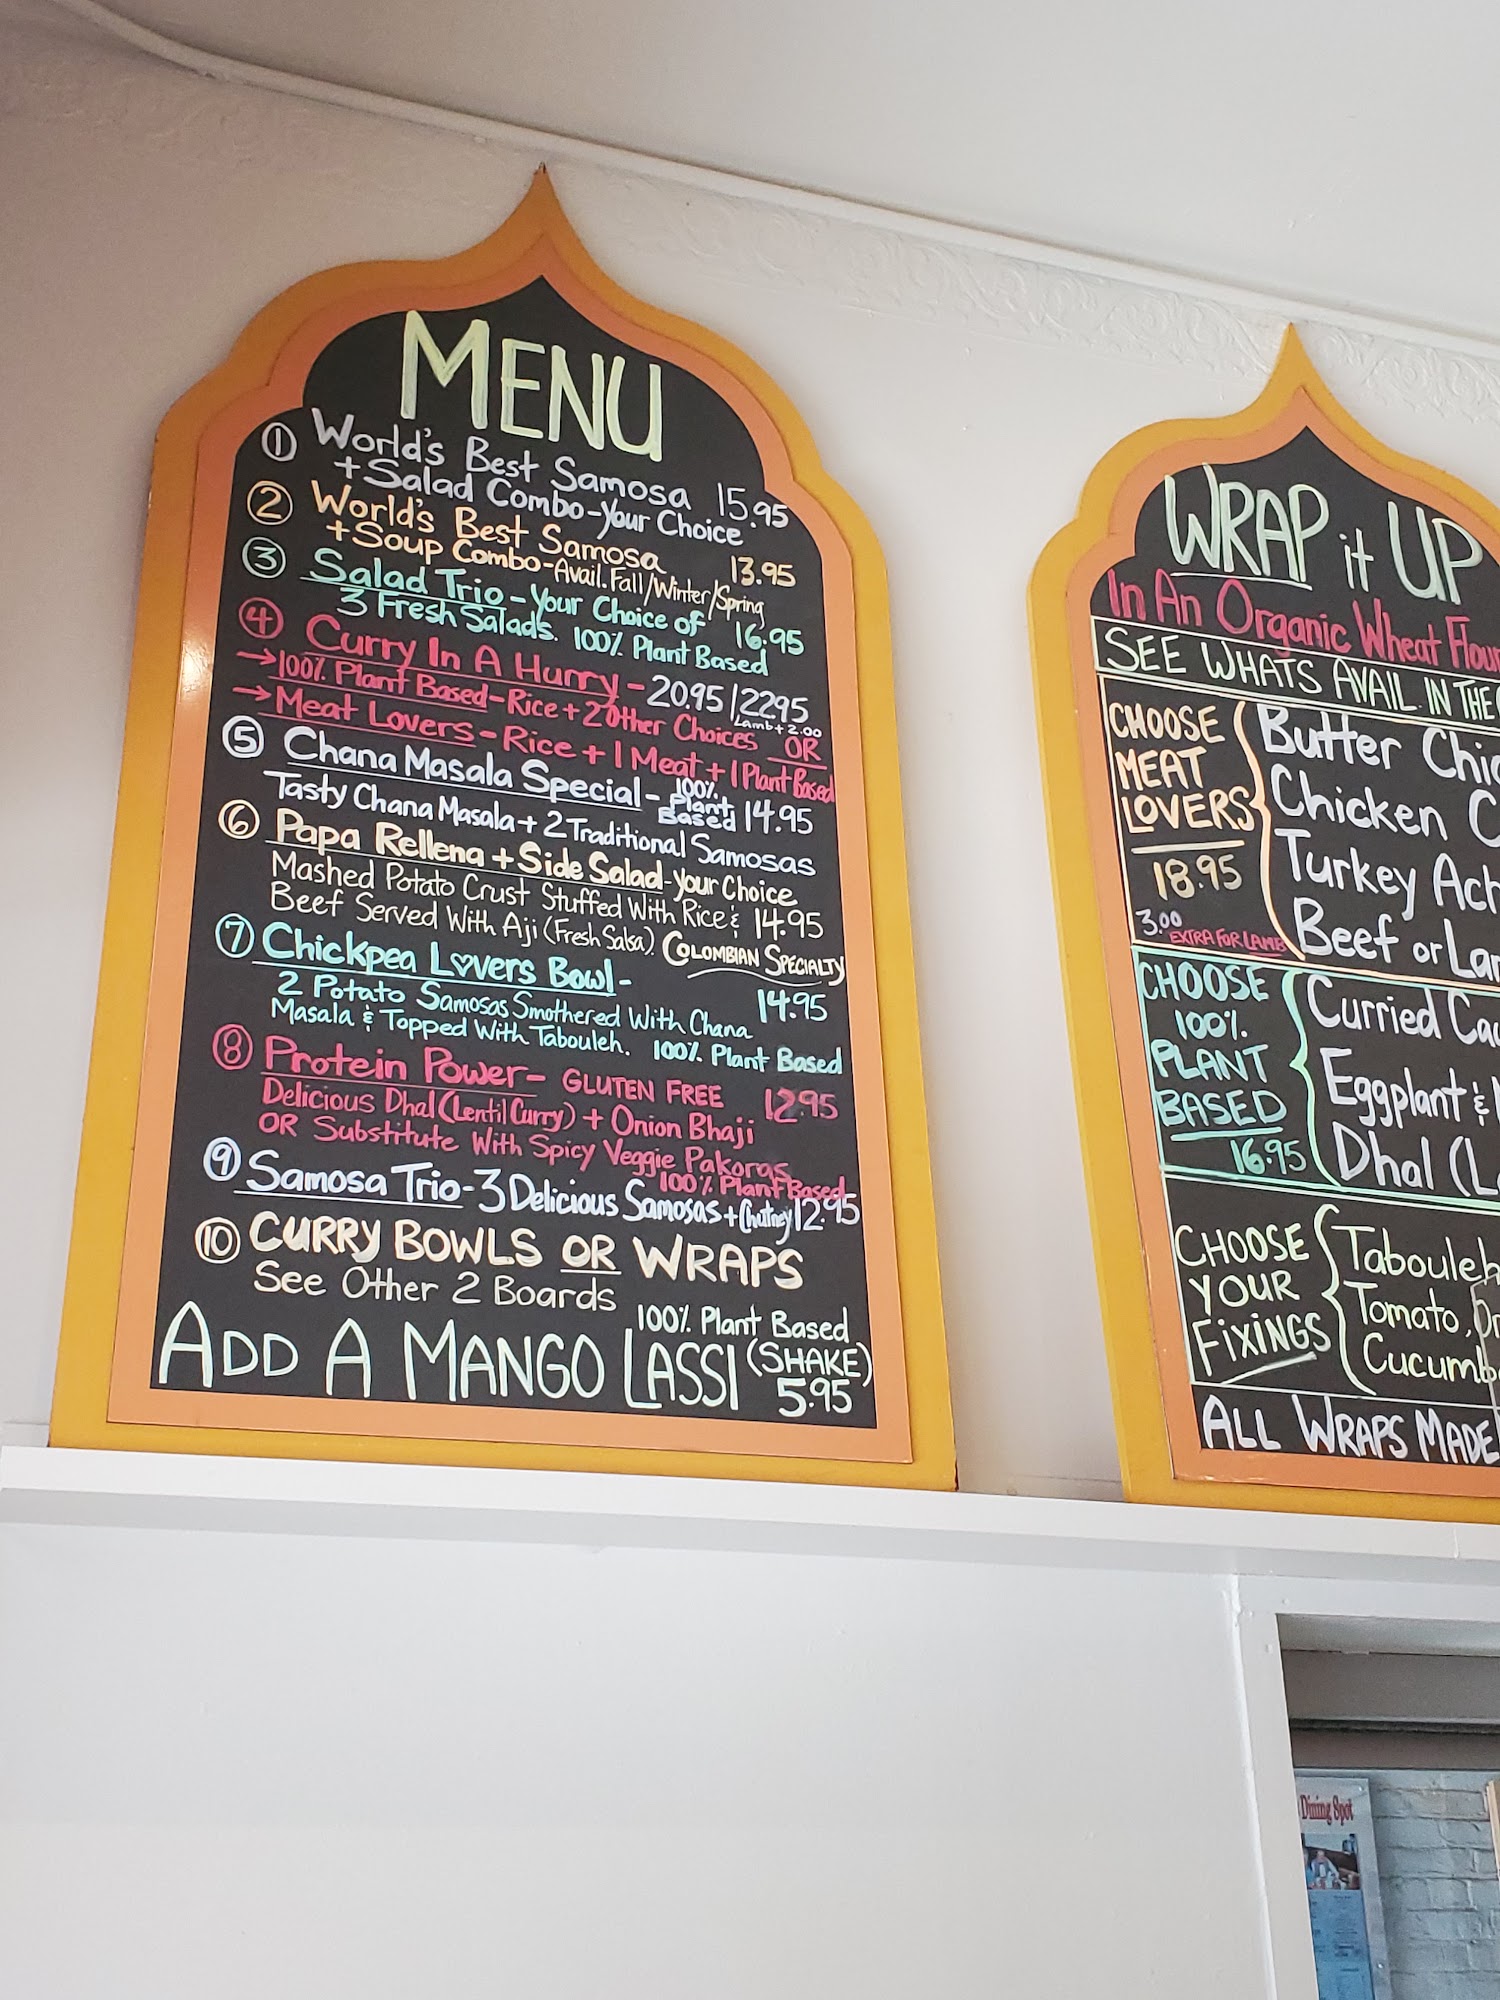 MENU
① World's Best Samosa
+ Salad Combo - Your Choice 15.95
② World's Best Samosa
+ Soup Combo - Avail. Fall/Winter/Spring 13.95
③ Salad Trio - Your Choice of
3 Fresh Salads. 100% Plant Based 16.95
④ Curry In A Hurry - 20.95 | 22.95
Lamb + 2.00
→ 100% Plant Based - Rice + 2 Other Choices OR
→ Meat Lovers - Rice + 1 Meat + 1 Plant Based
⑤ Chana Masala Special - 100% Plant Based 14.95
Tasty Chana Masala + 2 Traditional Samosas
⑥ Papa Rellena + Side Salad - Your Choice
Mashed Potato Crust Stuffed With Rice & 14.95
Beef Served With Aji (Fresh Salsa). COLOMBIAN SPECIALTY
⑦ Chickpea L♥vers Bowl -
2 Potato Samosas Smothered With Chana 14.95
Masala & Topped With Tabouleh. 100% Plant Based
⑧ Protein Power - GLUTEN FREE 12.95
Delicious Dhal (Lentil Curry) + Onion Bhaji
OR Substitute With Spicy Veggie Pakoras
100% Plant Based
⑨ Samosa Trio - 3 Delicious Samosas + Chutney 12.95
⑩ CURRY BOWLS OR WRAPS
See Other 2 Boards
100% Plant Based
ADD A MANGO LASSI (SHAKE)
5.95
WRAP it UP
In An Organic Wheat Flour
SEE WHATS AVAIL. IN THE
CHOOSE
MEAT
LOVERS
18.95
3.00
EXTRA FOR LAMB
Butter
Chicken
Turkey
Beef or
CHOOSE
100%
PLANT
BASED
16.95
Curried
Eggplant &
Dhal
CHOOSE
YOUR
FixiNGS
Tabouleh
Tomato,
ALL WRAPS MADE
Dining Spot